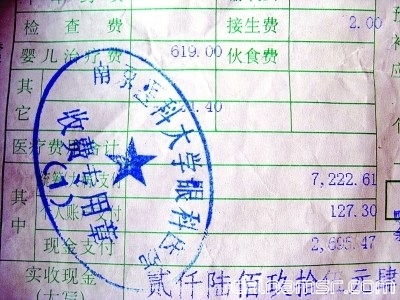 检 查 费
接生费 2.00
婴儿治疗费 619.00 伙食费
其
它 .40
医疗费用合计
7,222.61
其 个人账 支付 127.30
中 现金支付 2,695.47
实收现金
(大写) 贰仟陆佰玖拾伍元肆
南京医科大学眼科医
收费专用章
(1)